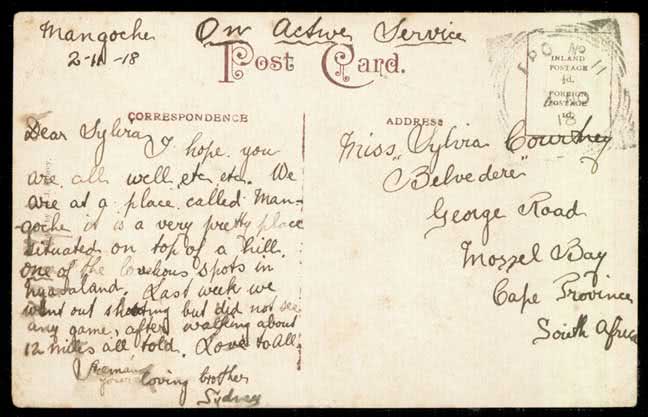 Mangoche On Active Service
2-11-18
Post Card.
FPO No 11
INLAND
POSTAGE
½d.
FOREIGN
POSTAGE
1d.
18
CORRESPONDENCE
Dear Sylvia
I hope you
are all well etc etc. We
are at a place called Man-
-goche it is a very pretty place
situated on top of a hill.
one of the spots in
Nyasaland. Last week we
went out shooting but did not see
any game, after walking about
12 miles all told. Love to All
loving brother
Sydney
ADDRESS
Miss, Sylvia Courtney
"Belvedere"
George Road
Mossel Bay
Cape Province
South Africa